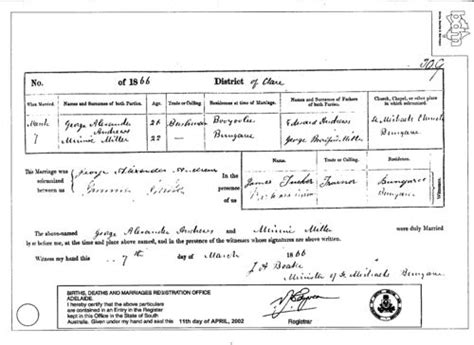 309
No. of 1866 District of Clare
When Married. Names and Surnames of both Parties. Age. Trade or Calling. Residences at time of Marriage. Names and Surnames of Fathers of both Parties. Church, Chapel, or other place in which solemnized.
March George Alexander 28 Bushman Booyoolee Edward Andrews St Michaels Church
7 Andrews Bungaree
Minnie Miller 22 Bungaree George Miller
Name. Trade or Calling. Residence.
This Marriage was solemnized between us George Alexander Andrews in the presence of us James Bungaree Witnesses.
Bungaree
The above-named George Alexander Andrews and Minnie Miller were duly Married
by before me, at the time and place above named, and in the presence of the witnesses whose signatures are above written.
Witness my hand this 7th day of March 1866
J H
Minister of St Michaels Bungaree
BIRTHS, DEATHS AND MARRIAGES REGISTRATION OFFICE
ADELAIDE.
I hereby certify that the above particulars
are contained in an Entry in the Register
kept in this Office in the State of South
Australia. Given under my hand and seal this 11th day of APRIL, 2002
Registrar